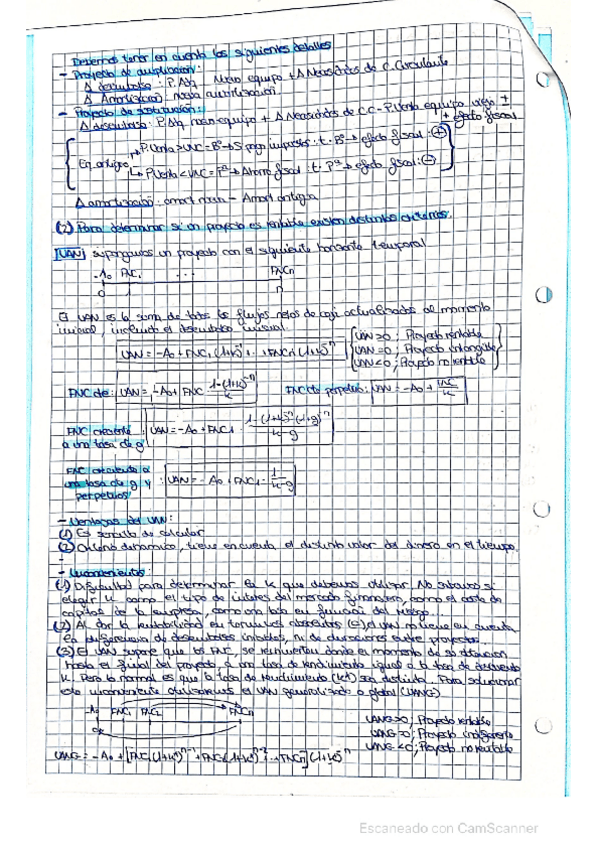 Debemos tener en cuenta los siguientes detalles
- Proyecto de ampliación:
Δ desembolso: P. Adq. Nuevo equipo + Δ Necesidades de C. Circulante
Δ Amortización: nueva amortización.
- Proyecto de sustitución:
Δ desembolso: P. Adq nuevo equipo + Δ Necesidades de CC - P. Venta equipo viejo ± 
± efecto fiscal
Eq. antiguo
P. Venta > VNC = Bº → pago impuestos: t · Bº → efecto fiscal: (+)
P. Venta < VNC = Pª → Ahorro fiscal: t · Pª → efecto fiscal: (-)
Δ amortización: amort nueva - Amort antigua
(2) Para determinar si un proyecto es rentable existen distintos criterios.
[VAN] supongamos un proyecto con el siguiente horizonte temporal
-A0 FNC1 ... FNCn
0 1 n
El VAN es la suma de todos los flujos netos de caja actualizados al momento
inicial, incluido el desembolso inicial.
VAN = -A0 + FNC1 (1+k)^-1 + ... + FNCn (1+k)^-n
VAN > 0; Proyecto rentable
VAN = 0; Proyecto indiferente
VAN < 0; Proyecto no rentable
FNC cte: VAN = -A0 + FNC · 1-(1+k)^-n / k
FNC cte perpetuo: VAN = -A0 + FNC/k
FNC creciente
a una tasa de g
: VAN = -A0 + FNC1 · 1-(1+k)^-n (1+g)^n / k-g
FNC creciente a
una tasa de g y
perpetuos
: VAN = -A0 + FNC1 · 1/k-g
- Ventajas del VAN:
(1) Es sencillo de calcular
(2) Criterio dinámico, tiene en cuenta el distinto valor del dinero en el tiempo.
- Inconvenientes:
(1) Dificultad para determinar la k que debemos utilizar. No sabemos si
elegir k como el tipo de interés del mercado financiero, como el coste de
capital de la empresa, como una tasa en función del riesgo...
(2) Al dar la rentabilidad en términos absolutos (€) el VAN no tiene en cuenta
la diferencia de desembolsos iniciales, ni de duraciones entre proyectos.
(3) El VAN supone que los FNC, se reinvierten desde el momento de su obtención
hasta el final del proyecto, a una tasa de rendimiento igual a la tasa de descuento
k. Pero lo normal es que la tasa de rendimiento (k*) sea distinta. Para solucionar
este inconveniente utilizaremos el VAN generalizado o global (VANG)
-A0 FNC1 FNC2 FNCn
VANG > 0; Proyecto rentable
VANG = 0; Proyecto indiferente
VANG < 0; Proyecto no rentable
VANG = -A0 + [FNC1 (1+k*)^n-1 + FNC2 (1+k*)^n-2 + ... + FNCn] (1+k)^-n
Escaneado con CamScanner